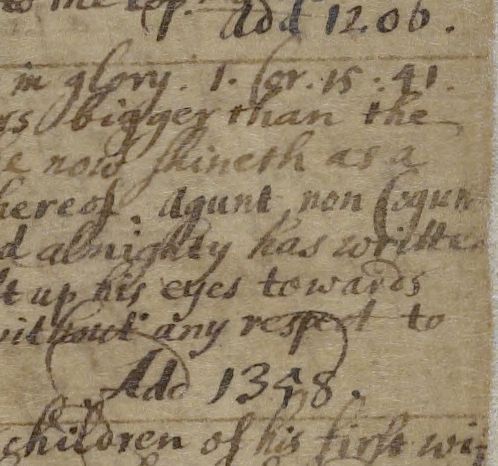 to the top
Add 1206.
in glory. 1. Cor. 15 : 41.
rs bigger than the
e now shineth as a
hereof. agunt non loqun
d almighty has written
t up his eyes towards
without any respect to
Add 1358.
children of his first wi